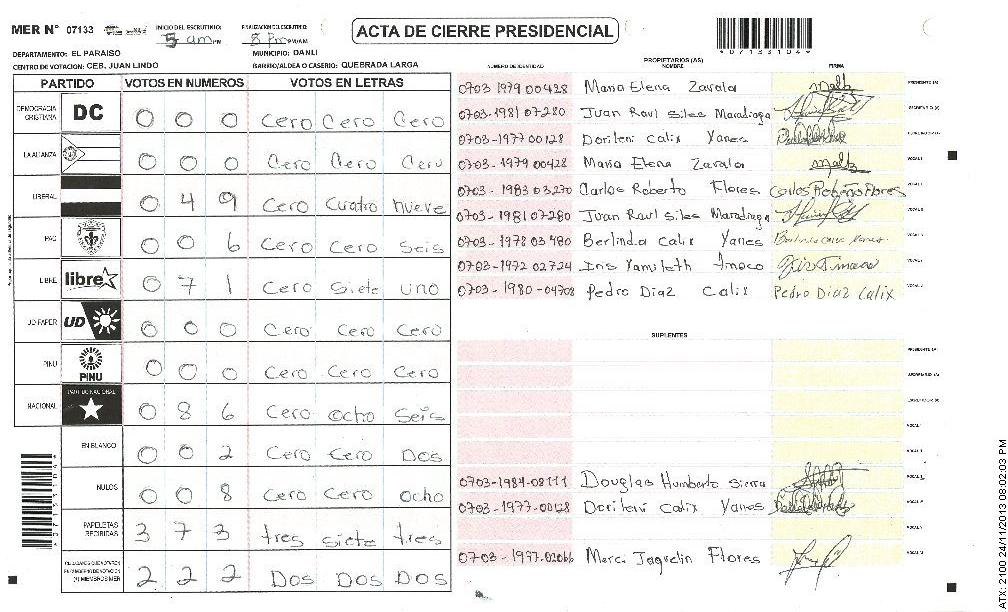 MER N° 07133 INICIO DEL ESCRUTINIO: 5 am PM FINALIZACION DEL ESCRUTINIO: 8 Pm PM/AM
ACTA DE CIERRE PRESIDENCIAL
*07133104*
DEPARTAMENTO: EL PARAISO MUNICIPIO: DANLI
CENTRO DE VOTACION: CEB. JUAN LINDO BARRIO/ALDEA O CASERIO: QUEBRADA LARGA
PARTIDO VOTOS EN NUMEROS VOTOS EN LETRAS
DEMOCRACIA CRISTIANA DC 0 0 0 Cero Cero Cero
LA ALIANZA 0 0 0 Cero Cero Cero
LIBERAL 0 4 9 Cero Cuatro nueve
PAC 0 0 6 Cero Cero Seis
LIBRE libre 0 7 1 Cero Siete uno
UD FAPER UD 0 0 0 Cero Cero Cero
PINU PINU 0 0 0 Cero Cero Cero
NACIONAL PARTIDO NACIONAL 0 8 6 Cero Ocho Seis
EN BLANCO 0 0 2 Cero Cero Dos
NULOS 0 0 8 Cero Cero Ocho
PAPELETAS RECIBIDAS 3 7 3 tres siete tres
2 2 2 Dos Dos Dos
PROPIETARIOS (AS)
NUMERO DE IDENTIDAD NOMBRE FIRMA
0703 1979 00428 Maria Elena Zavala PRESIDENTE (A)
0703-1981 07280 Juan Raul Siles Maradiaga SECRETARIO (A)
0703-1977 00128 Dorileni Calix Yanes
0703-1979 00428 Maria Elena Zavala VOCAL I
0703-1983 03270 Carlos Roberto Flores Carlos Roberto Flores
0703-1981 07280 Juan Raul Siles Maradiaga
0703-1978 03480 Berlinda Calix Yanes
0703-1972 02724 Iris Yamileth
0703-1980-04708 Pedro Diaz Calix Pedro Diaz Calix
SUPLENTES
PRESIDENTE (A)
SECRETARIO (A)
0703-1984-08111 Douglas Humberto Sierra
0703-1977-00128 Dorileni Calix Yanes
Merci Jaquelin Flores
ATX: 2100 24/11/2013 08:02:03 PM